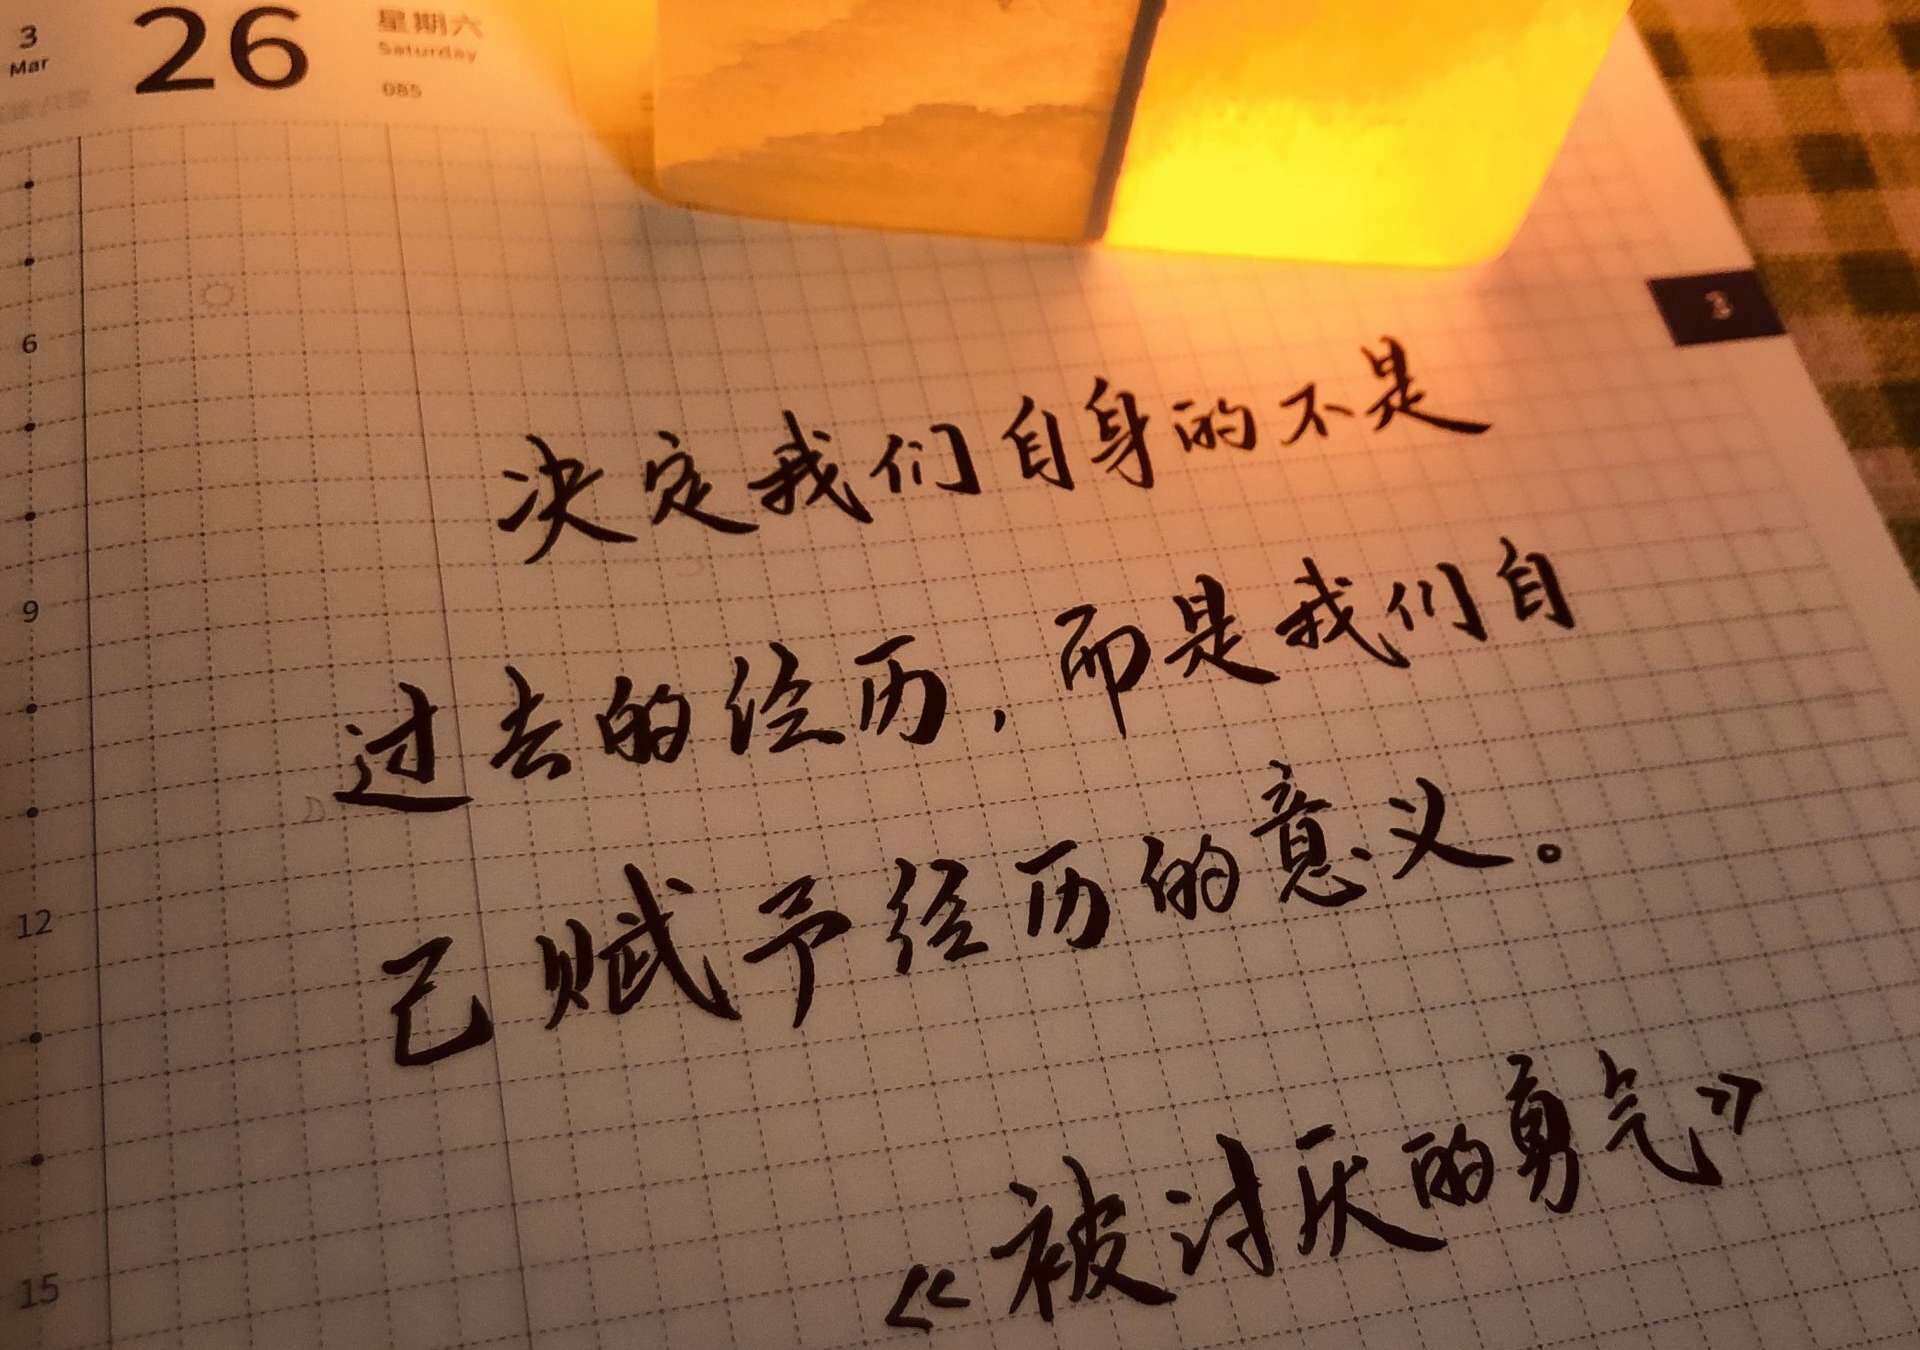 3
Mar
26
星期六
Saturday
085
3
6
9
12
15
决定我们自身的不是
过去的经历,而是我们自
己赋予经历的意义。
《被讨厌的勇气》